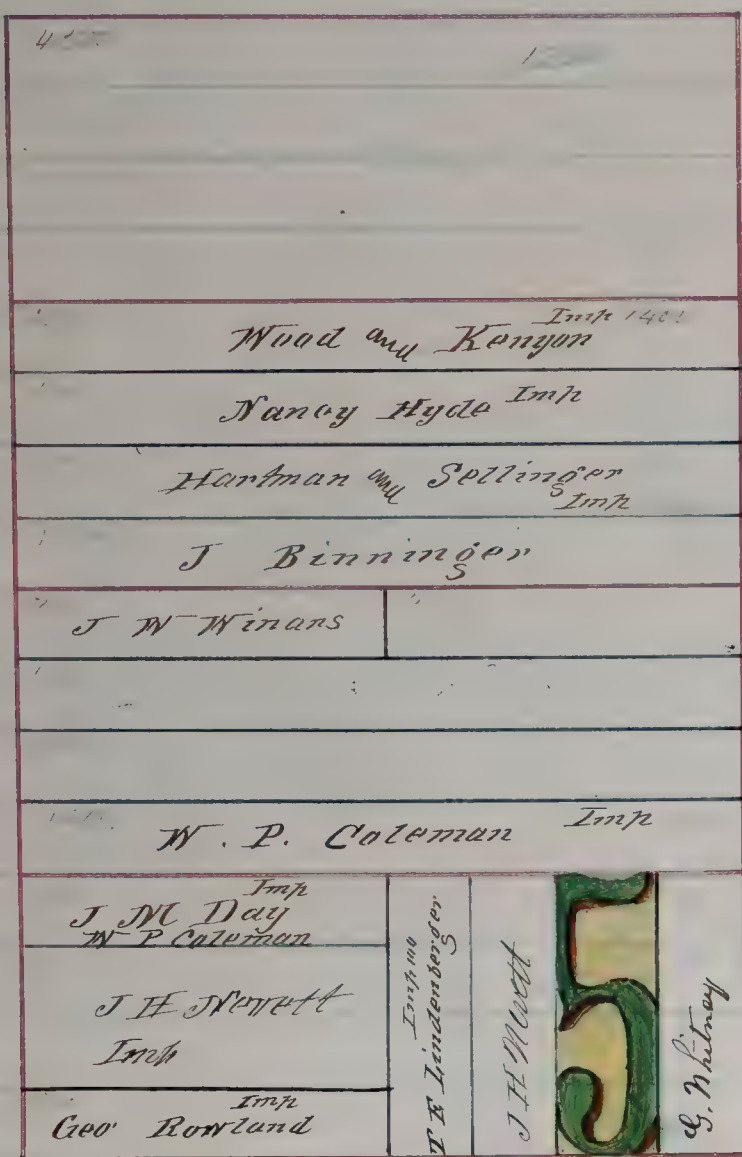 Imp
Wood and Kenyon
Nancy Hyde Imp
Hartman and Sellinger
Imp
J Binninger
J W Winans
W. P. Coleman Imp
Imp
J M Day
W P Coleman
J H Nevett
Imp
Imp
Geo Rowland
Imp
T E Lindenberger
J H Nevett
5
G. Whitney